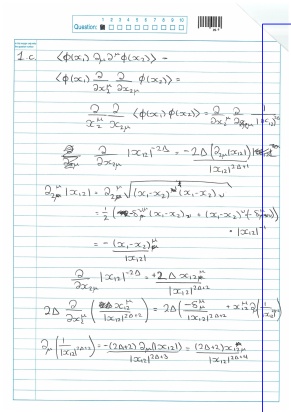 1 2 3 4 5 6 7 8 9 10
Question:
1.c. ⟨φ(x₁) ∂μ ∂^μ φ(x₂)⟩ =
⟨φ(x₁) ∂/∂x₂^μ ∂/∂x₂μ φ(x₂)⟩ =
∂/x₂^μ ∂/x₂μ ⟨φ(x₁) φ(x₂)⟩ = ∂/∂x₂^μ ∂/∂x₂μ 1/|x₁₂|^2Δ
∂/∂x₂μ |x₁₂|^-2Δ = -2Δ (∂₂μ|x₁₂|) / |x₁₂|^2Δ+1
∂₂^μ |x₁₂| = ∂₂^μ √((x₁-x₂)^ν (x₁-x₂)ν)
= 1/2 (-δ^ν (x₁-x₂)ν + (x₁-x₂)^ν (-δ)) · |x₁₂|^-1
= -(x₁-x₂)^μ / |x₁₂|
∂/∂x₂μ |x₁₂|^-2Δ = +2Δ x₁₂^μ / |x₁₂|^2Δ+2
2Δ ∂/∂x₂^μ (x₁₂^μ / |x₁₂|^2Δ+2) = 2Δ (-δ^μ / |x₁₂|^2Δ+2 + x₁₂^μ ∂(1/|x₁₂|
∂μ (1/|x₁₂|^2Δ+2) = -(2Δ+2) ∂μ|x₁₂| / |x₁₂|^2Δ+3 = (2Δ+2) x₁₂μ / |x₁₂|^2Δ+4